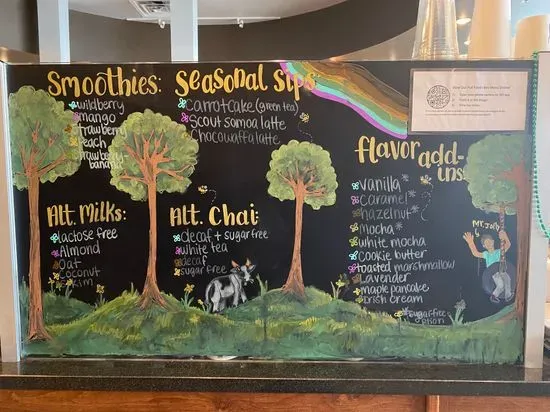 Smoothies:
wildberry
mango
strawberry
peach
strawberry
banana
Seasonal Sips
Carrot cake (green tea)
Scout Somoa latte
Chocowaffa latte
flavor add-
ins:
vanilla*
Caramel
hazelnut*
mocha*
white mocha
cookie butter
toasted marshmallow
Lavender
maple pancake
irish cream
*sugar free
option
Alt. Milks:
lactose free
Almond
Oat
coconut
skim
Alt. Chai:
decaf + sugar free
white tea
decaf
sugar free